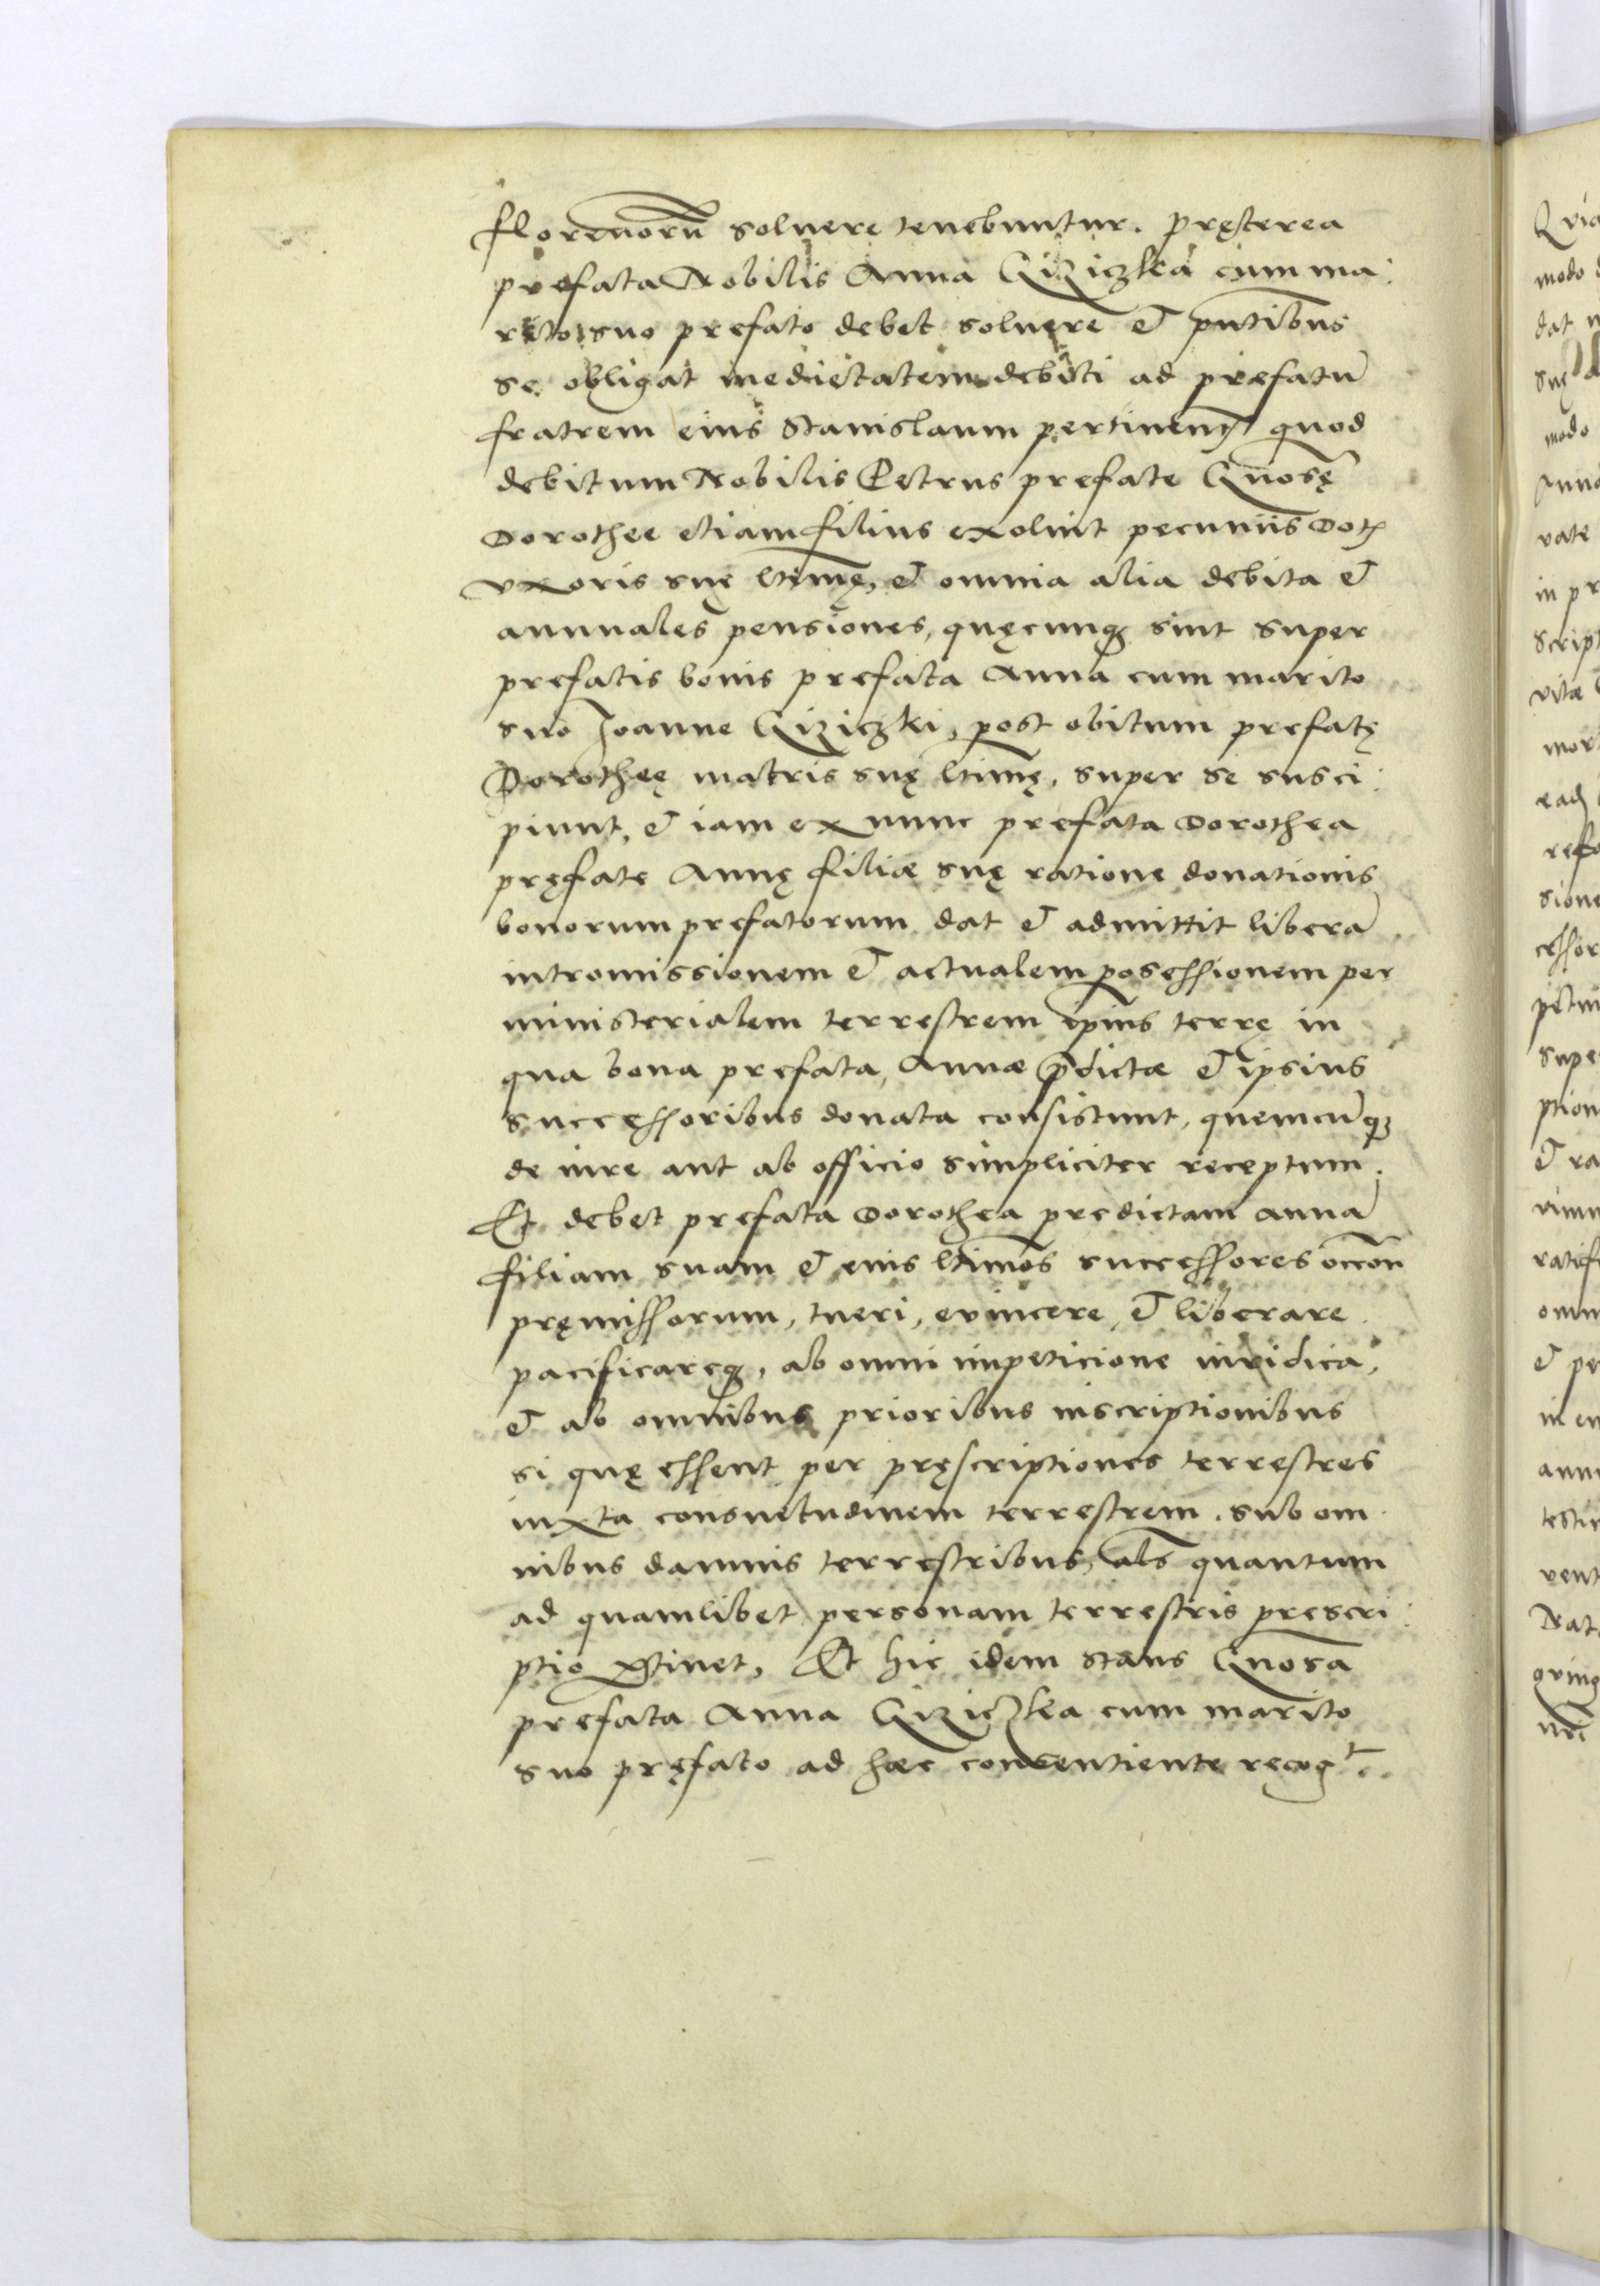 florenorū soluere tenebuntur. pręterea
prefata Nobilis Anna Giziczka cum ma:
rito suo prefato debet soluere et pn̄tibus
se obligat medietatem debiti ad prefatū
fratrem eius Stanislaum pertinen̄ quod
debitum Nobilis Petrus prefate Gn̄osę
Dorothee etiam filius exoluit pecuniis
vxoris suę ltimę, et omnia alia debita et
annuales pensiones, quęcunq3 sint super
prefatis bonis prefata Anna cum marito
suo Joanne Giziczki, post obitum prefatę
Dorotheę matris suę ltimę, super se susci:
piunt, et iam ex nunc prefata Dorothea
pręfate Annę filiæ suę ratione donationis
bonorum prefatorum dat et admittit liberā
intromissionem et actualem posessionem per
ministerialem terrestrem ipsius terrę in
qua bona prefata, Annæ p̄dictæ et ipsius
successoribus donata consistunt, quemcūq3
de iure aut ab officio simpliciter receptum.
Et debet prefata Dorothea predictam Annā
filiam suam et eius ltimos successores occōn
pręmissorum, tueri, euincere, et liberare
pacificareq3, ab omni impeticione iuridica,
et ab omnibus prioribus inscriptionibus
si quę essent per pręscriptiones terrestres
iuxta consuetudinem terrestrem. sub om
nibus damnis terrestribus, als quantum
ad quamlibet personam terrestris prescri:
ptio ptinet, Et hic idem stans Gn̄osa
prefata Anna Giziczka cum marito
suo pręfato ad hæc consentiente recog t..
Quia
modo
dat
suę
modo
Anna
vate
in pr
script
vitæ
mor
refa
sione
cessor
super
ption
et ra
ratifi
omn
et pe
in eu
annu
testi
vent
Nat